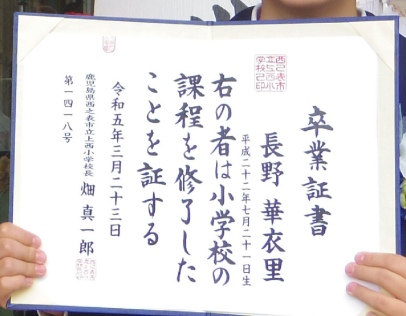 卒業証書
長野 華衣里
平成二十二年七月二十一日生
右の者は小学校の
課程を修了した
ことを証する
令和五年三月二十三日
鹿児島県西之表市立上西小学校長 畑 真一郎
第一四一八号